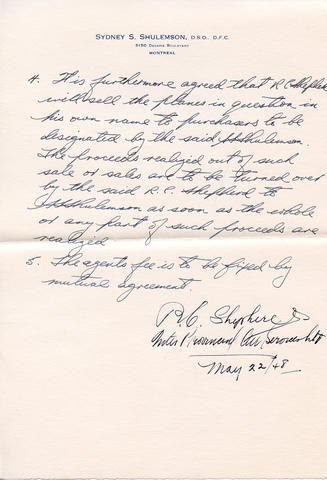 SYDNEY S. SHULEMSON, D.S.O. D.F.C.
5150 DECARIE BOULEVARD
MONTREAL
4. It is furthermore agreed that R.C. Shepherd
will sell the planes in question in
his own name to purchasers to be
designated by the said SSShulemson.
The proceeds realized out of such
sale or sales are to be turned over
by the said R.C. Shepherd to
SSShulemson as soon as the whole
or any part of such proceeds are
realized
5. The agents fee is to be fixed by
mutual agreement.
R.C. Shepherd
Inter Provincial Air Services Ltd
May 22/48